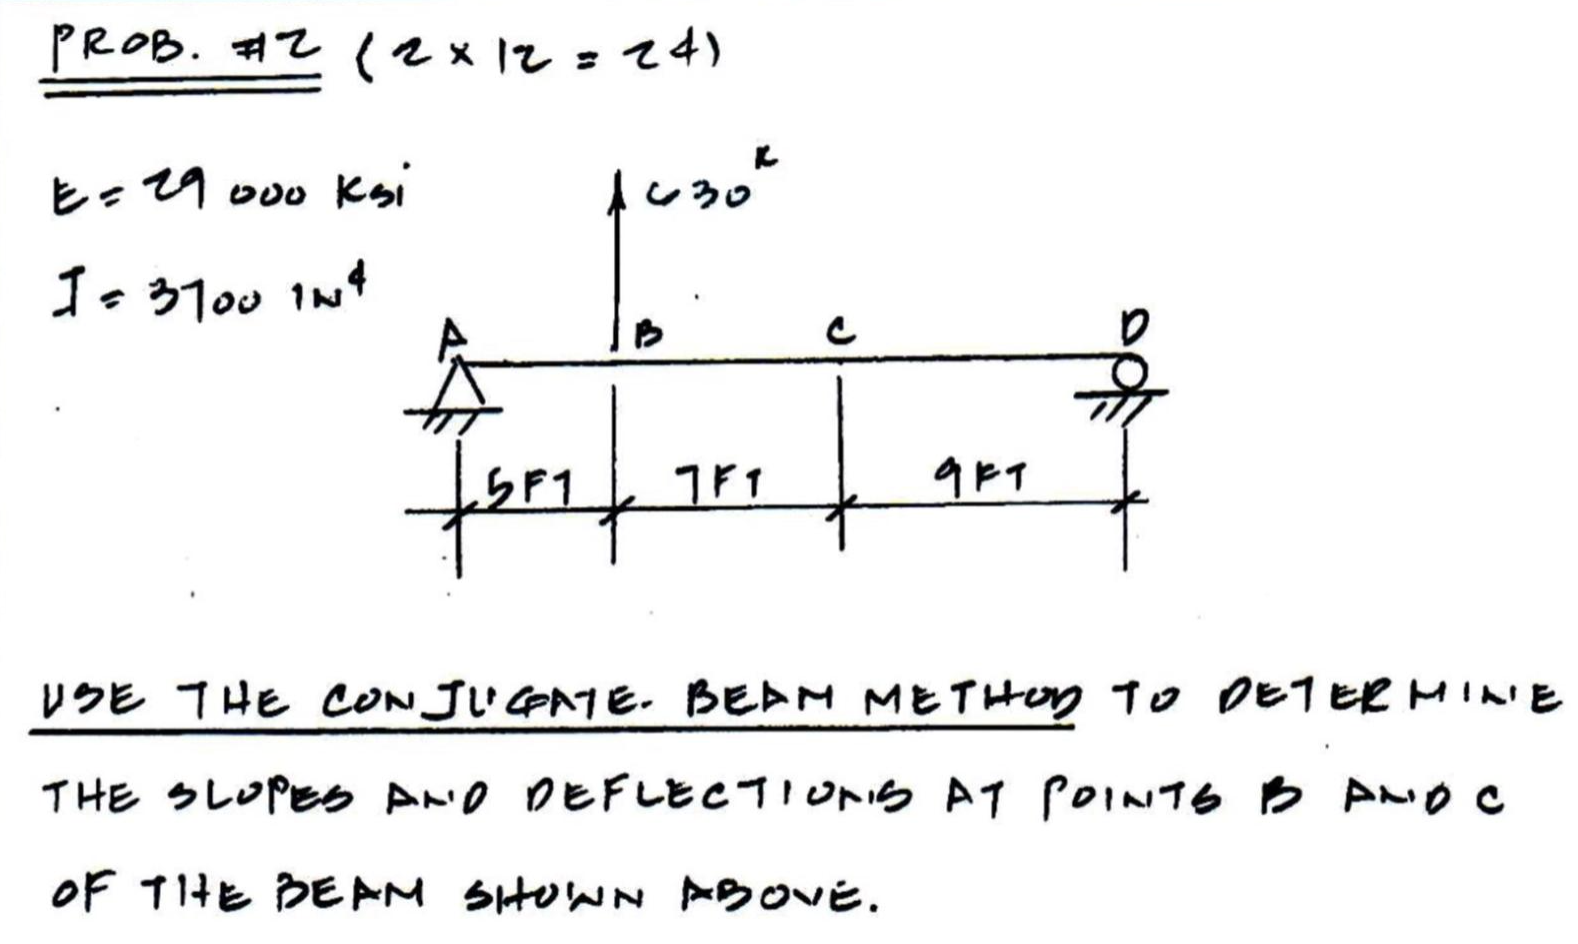 PROB. #2 (2 x 12 = 24)
E = 29 000 Ksi
630 K
I = 3700 IN4
A
B
C
D
5FT
7FT
9FT
USE THE CONJUGATE. BEAM METHOD TO DETERMINE
THE SLOPES AND DEFLECTIONS AT POINTS B AND C
OF THE BEAM SHOWN ABOVE.